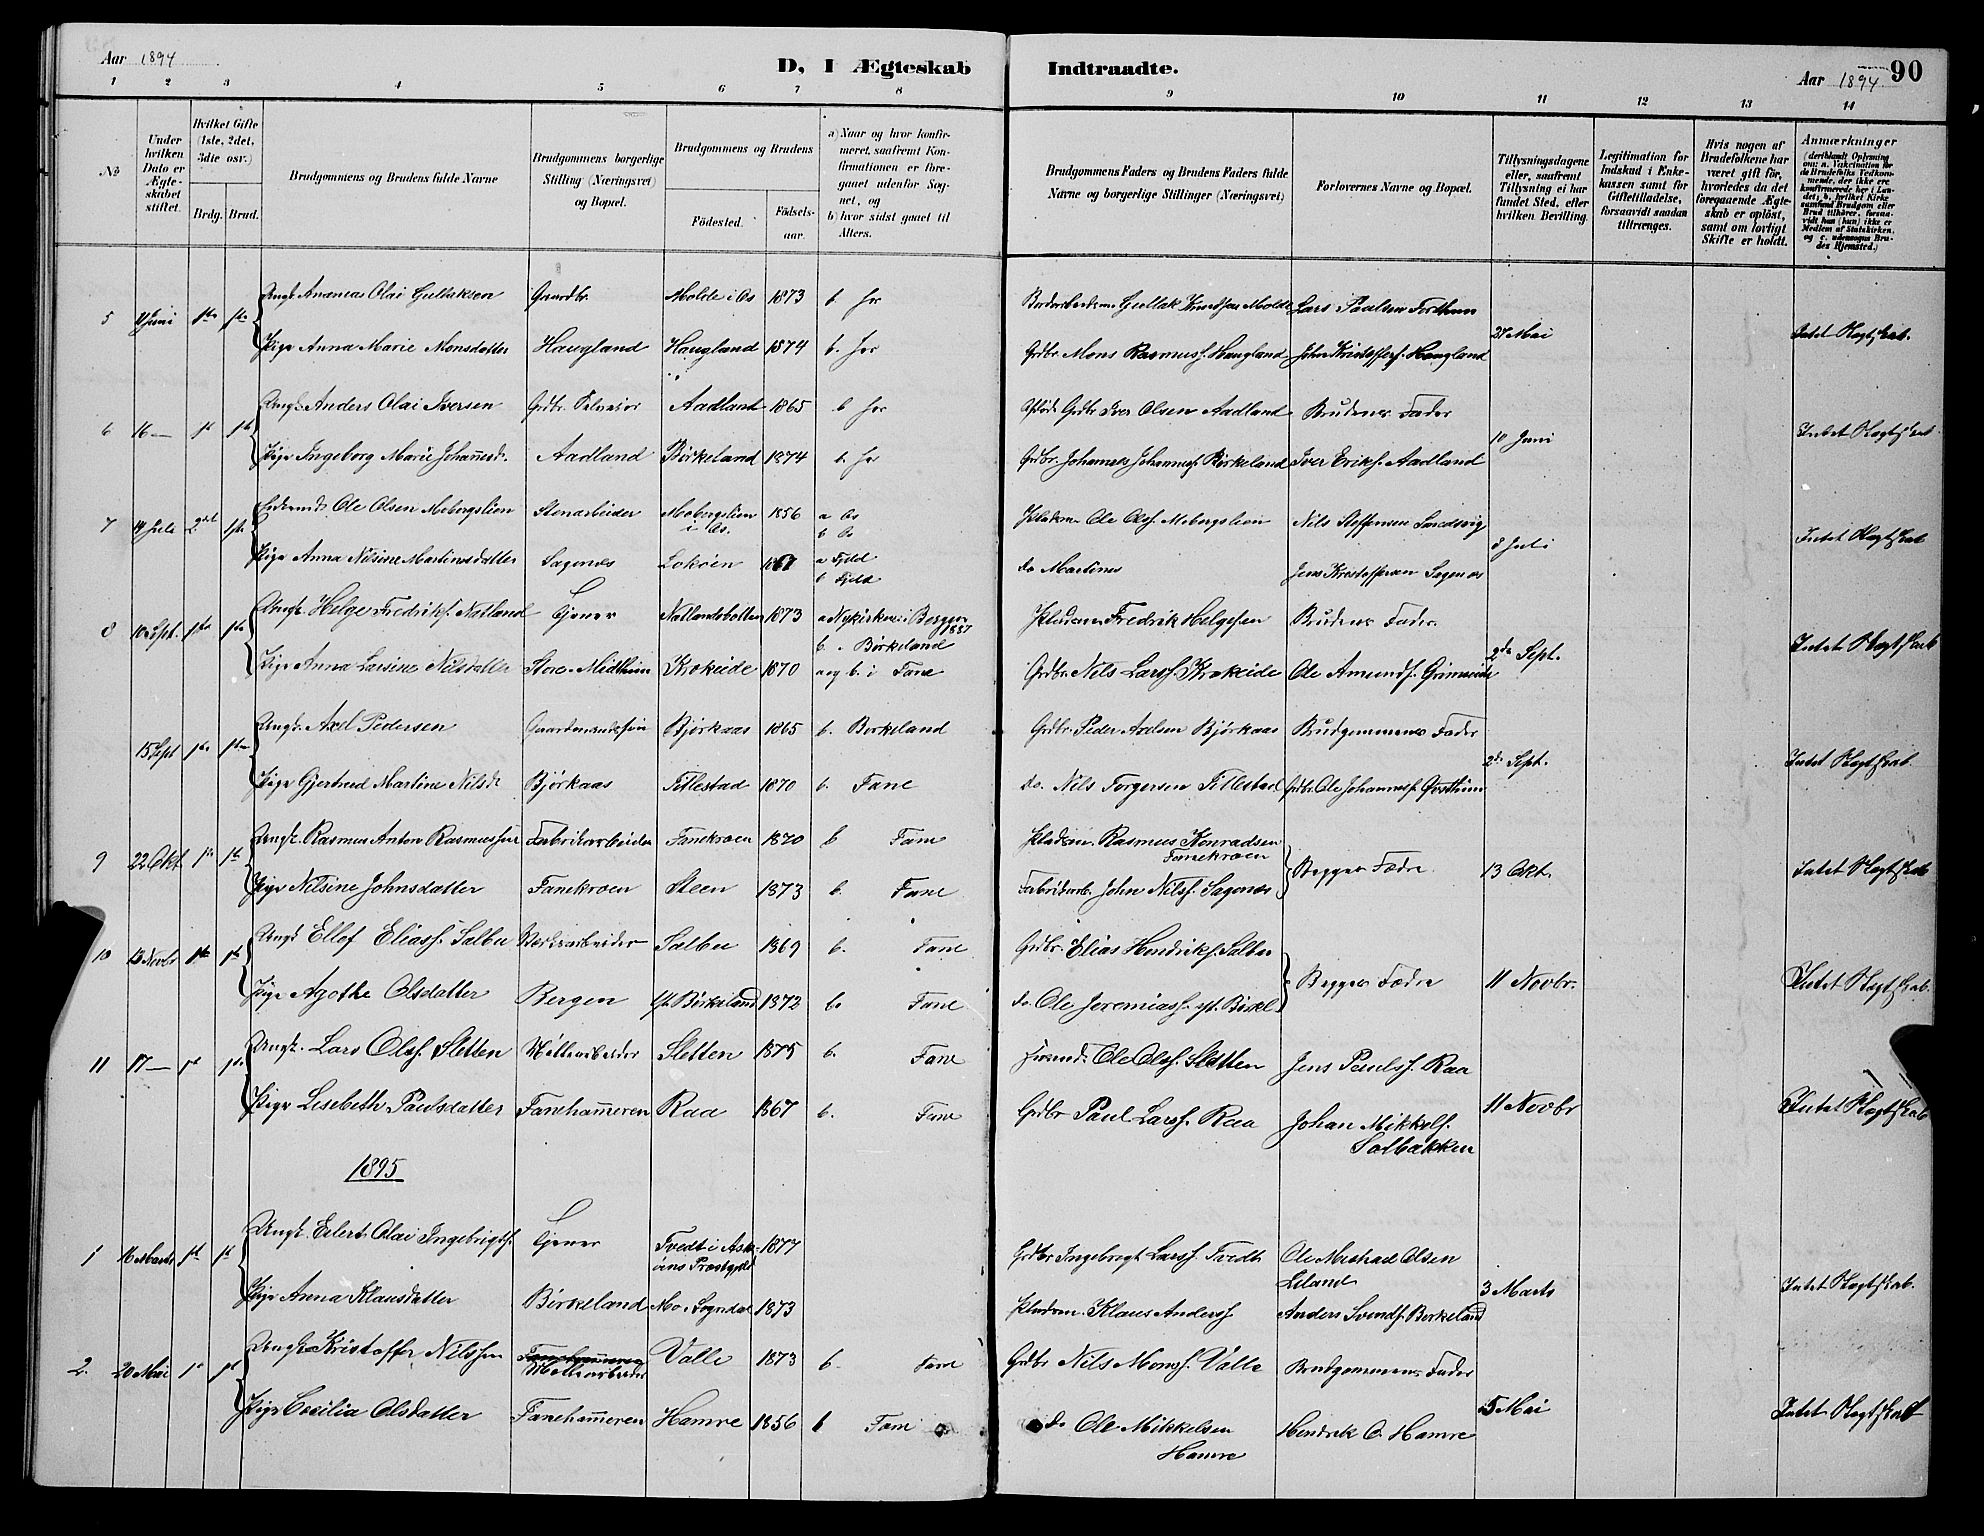 Aar 1894
D, I Ægteskab
Indtraadte.
Aar 1894
90
1 2 3 4 5 6 7 8
9 10 11 12 13 14
No
Under hvilken Dato er Ægteskabet stiftet.
Hvilket Gifte (1ste, 2det, 3die osv.)
Brdg. Brud.
Brudgommens og Brudens fulde Navne
Brudgommens borgerlige Stilling (Næringsvei) og Bopæl.
Brudgommens og Brudens
Födested.
Födselsaar.
a) Naar og hvor konfirmeret, saafremt Konfirmationen er foregaaet udenfor Sognet, og
b) hvor sidst gaaet til Alters.
Brudgommens Faders og Brudens Faders fulde Navne og borgerlige Stillinger (Næringsvei)
Forlovernes Navne og Bopæl.
Tillysningsdagene eller, saafremt Tillysning ei har fundet Sted, efter hvilken Bevilling.
Legitimation for Indskud i Enkekassen samt for Giftetilladelse, forsaavidt saadan tiltrænges.
Hvis nogen af Brudefolkene har været gift för, hvorledes da det foregaaende Ægteskab er oplöst, samt om lovligt Skifte er holdt.
Anmærkninger
(deriblandt Oplysning om: a. Vakcination for de Brudefolks Vedkommende, der ikke ere konfirmerede her i Landet; b. hvilket Kirkesamfund Brudgom eller Brud tilhörer, forsaavidt han (hun) ikke er Medlem af Statskirken, og c. udensogns Brudes Hjemsted.)
5 Juni 1ste 1ste Ungk. Ananias Olai Gullaksen Gaardbr. Molde i Os 1873 b. her Gullak Knudsen Molde Lars Paulsen
27 Mai Intet Slægtskab.
Pige Anna Marie Monsdatter Haugland Haugland 1874 b. her Grdbr. Mons Rasmuss. Haugland John Kristoffers. Haugland
6 16 — 1ste 1ste Ungk. Anders Olai Iversen Grdbr. Aadland 1865 b her Grdbr Iver Olsen Aadland Brudens Fader
10 Juni Intet Slægtskab.
Pige Ingeborg Marie Johannesd. Aadland Birkeland 1874 b. her Grdbr. Johannes Johanness. Birkeland Iver Eriks. Aadland
7 14 Juli 2det 1ste Enkemd. Ole Olsen Mobergslien Stenarbeider Mobergslien i Os. 1856 a Os b Os Pladsm. Ole Olss. Mobergslien Nils Steffensen Smedsvig
8 Juli Intet Slægtskab
Pige Anna Nilsine Martinusdatter Sagenes Lokøen 1867 a Fjeld b Fjeld do Martinus Jens Kristoffersen Sagenes
8 10 Sept. 1ste 1ste Ungk. Helge Fredriks. Natland Tjener Natlandsbotten 1873 a Nykirken i Bergen 1887 b. Birkeland Pladsm Fredrik Helgesen Brudens Fader.
2den Sept. Intet Slægtskab
Pige Anna Larsine Nilsdatter Store-Midttheim Krokeide 1870 a og b. i Fane Grdbr. Nils Larss. Krokeide Ole Amunds. Grimseide
15 Sept 1ste 1ste Ungk. Axel Pedersen Bjørkaas 1865 b. Birkeland Grdbr. Peder Axelsen Bjørkaas Brudgommens Fader
2de Sept. Intet Slægtskab
Pige Gjertrud Martine Nilsd. Bjørkaas Titlestad 1870 b. Fane do. Nils Torgersen Titlestad Grdbr. Ole Johanness.
9 22 Okt 1ste 1ste Ungk. Rasmus Anton Rasmussen Fabrikarbeider Fanekroen 1870 b Fane Pladsm. Rasmus Konradsen Fanekroen Begges Fædre. 13 Okt. Intet Slægtskab
Pige Nilsine Johnsdatter Fanekroen Steen 1873 b. Fane Fabrikarb. John Nilss. Sagenes
10 13 Novbr 1ste 1ste Ungk Ellef Eliass. Salbu Salbu 1869 b. Fane Grdbr. Elias Hendriks. Salbu Begges Fædre 11 Novbr. Intet Slægtskab.
Pige Agothe Olsdatter Bergen yt. Birkeland 1872 b. Fane do. Ole Jeremiass. yt. Birkel.
11 17 — 1ste 1ste Ungk. Lars Olss. Sletten Møllearbeider Sletten 1875 b. Fane Ole Olss. Sletten Jens Pauls. Raa
11 Novbr Intet Slægtskab
Pige Lisebeth Paulsdatter Fanehammeren Raa 1867 b. Fane Grdbr. Paul Larss. Raa Johan Mikkels. Salbakken
1895
1 16 Marts 1ste 1ste Ungk. Eilert Olai Ingebrigts. Tjener Tvedt i Askøens Præstegjeld 1877 Grdbr Ingebrigt Larss. Tvedt Ole Mikhael Olsen Liland
3 Marts Intet Slægtskab.
Pige Anna Klausdatter Birkeland Mo i Sogndal 1873 Pladsm. Klaus Anderss Anders Svends. Birkeland
2. 20 Mai 1ste 1ste Ungk. Kristoffer Nilssen Møllearbeider Valle 1873 b. Fane Grdbr Nils Monss. Valle Brudgommens Fader
5 Mai Intet Slægtskab
Pige Cecilia Olsdatter Fanehammeren Hamre 1856 b Fane do Ole Mikkelsen Hamre Hendrik O. Hamre